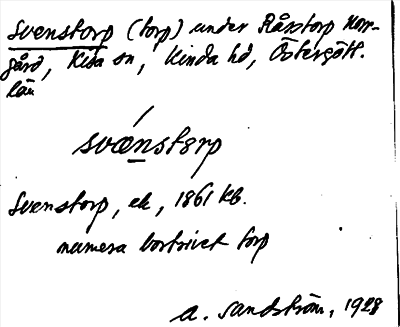 Svenstorp (torp) under Råstorp Norr-
gård, Kisa sn, Kinda hd, Östergötl.
län
svænstɘrp
Svenstorp, ek, 1861 kb.
numera bortrivet torp
A. Sandström, 1928